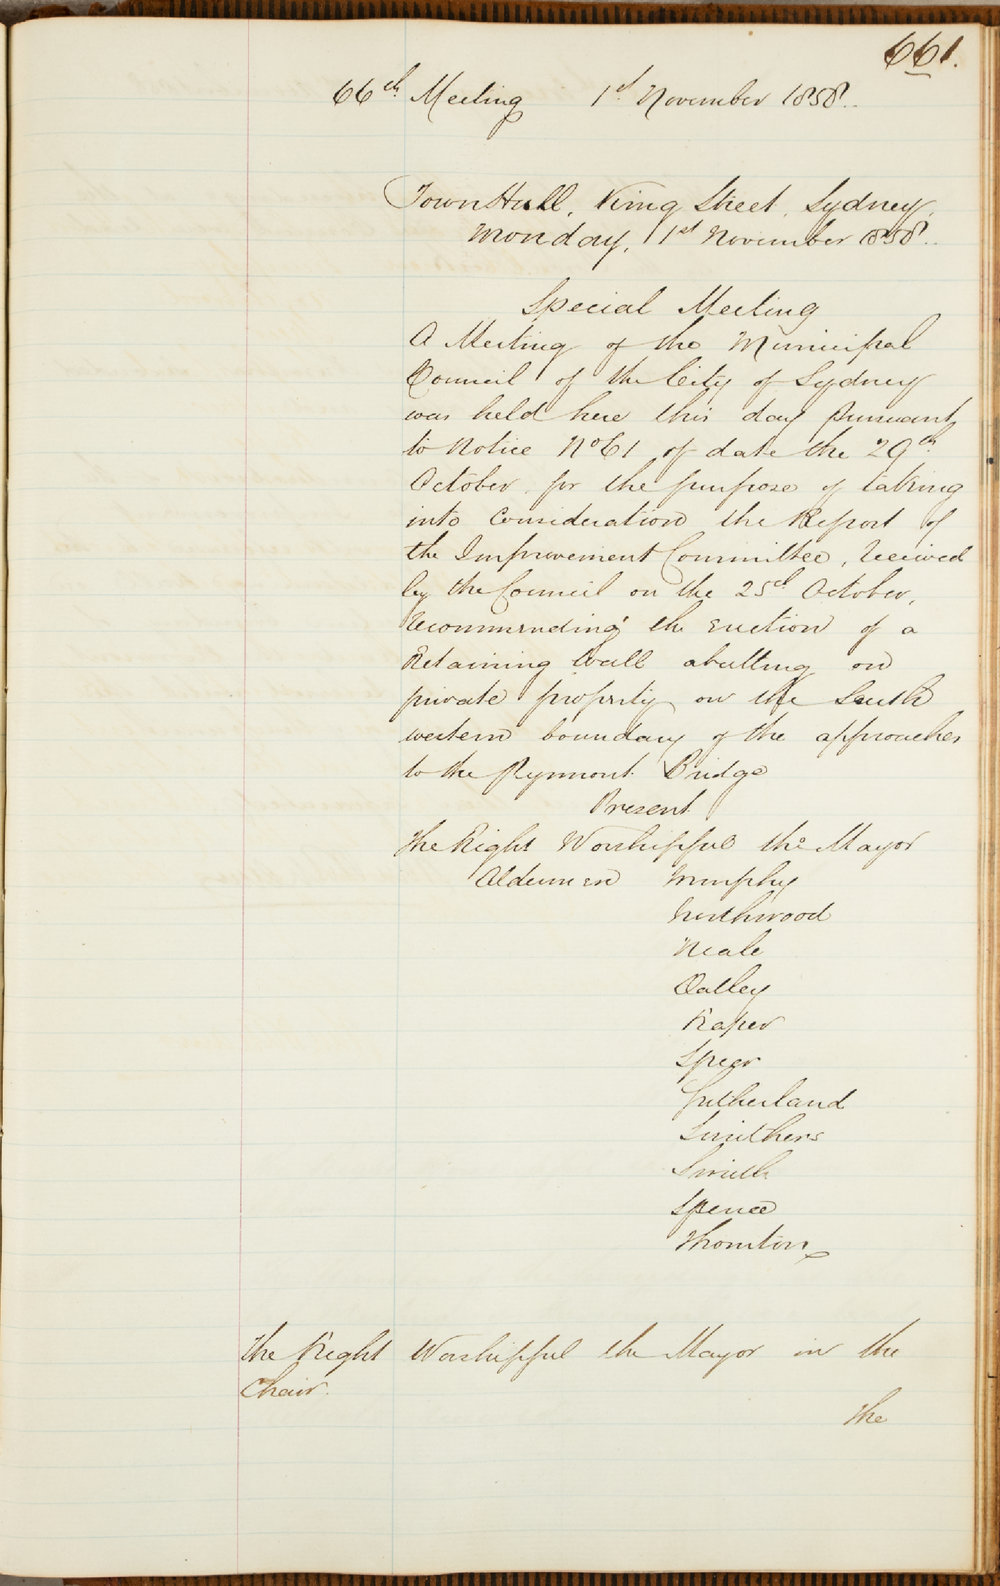 661.
66th Meeting 1st November 1858.
Town Hall, King Street, Sydney,
Monday, 1st November 1858.
Special Meeting
A Meeting of the Municipal
Council of the City of Sydney
was held here this day pursuant
to Notice No 61 of date the 29th
October, for the purpose of taking
into Consideration the Report of
the Improvement Committee, received
by the Council on the 25th October,
recommending the erection of a
Retaining Wall abutting on
private property on the South
western boundary of the approaches
to the Pyrmont Bridge
Present
The Right Worshipful the Mayor
Aldermen Murphy
Northwood
Neale
Oatley
Raper
Speer
Sutherland
Smithers
Smith
Spence
Thornton
The Right Worshipful the Mayor in the
Chair.
The